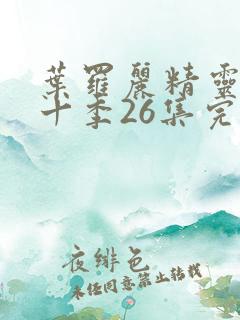 葉羅麗精靈
十季26集完
夜緋色
未經同意禁止轉載